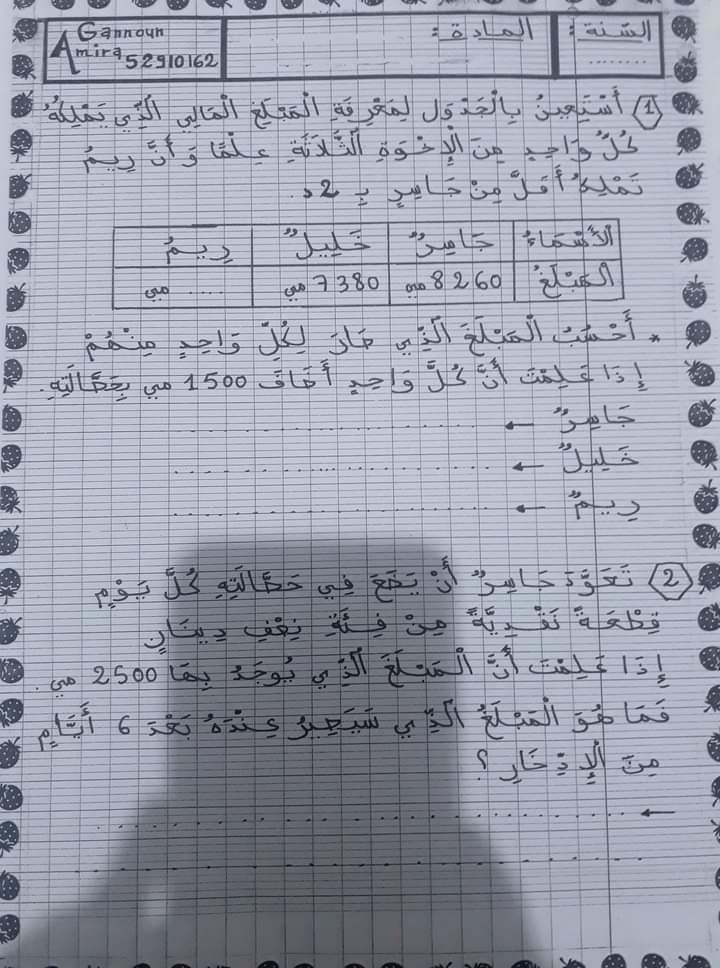 السّنة: ........
المادة:
Gannoun
Amira 52910162
1 أَسْتَعِينُ بِالْجَدْوَلِ لِمَعْرِفَةِ الْمَبْلَغِ الْمَالِي الَّذِي يَمْلِكُهُ
كُلُّ وَاحِدٍ مِنَ الْإِخْوَةِ الثَّلَاثَةِ عِلْمًا وَ أَنَّ رِيمُ
تَمْلِكُ أَقَلَّ مِنْ جَاسِرٍ بِـ 2د.
الْأَسْمَاءُ جَاسِرٌ خَلِيلٌ رِيمُ
الْمَبْلَغُ 8260 مي 7380 مي ..... مي
* أَحْسُبُ الْمَبْلَغَ الَّذِي صَارَ لِكُلِّ وَاحِدٍ مِنْهُمْ
إِذَا عَلِمْتَ أَنَّ كُلَّ وَاحِدٍ أَضَافَ 1500 مي بِحَصَّالَتِهِ.
جَاسِرٌ ← ..............................
خَلِيلٌ ← ..............................
رِيمٌ ← ..............................
2 تَعَوَّدَ جَاسِرٌ أَنْ يَضَعَ فِي حَصَّالَتِهِ كُلَّ يَوْمٍ
قِطْعَةً نَقْدِيَّةً مِنْ فِئَةِ نِصْفِ دِينَارٍ
إِذَا عَلِمْتَ أَنَّ الْمَبْلَغَ الَّذِي يُوجَدُ بِهَا 2500 مي.
فَمَا هُوَ الْمَبْلَغُ الَّذِي سَيَصِيرُ عِنْدَهُ بَعْدَ 6 أَيَّامٍ
مِنَ الْإِدِّخَارِ ؟
← ..............................
..............................